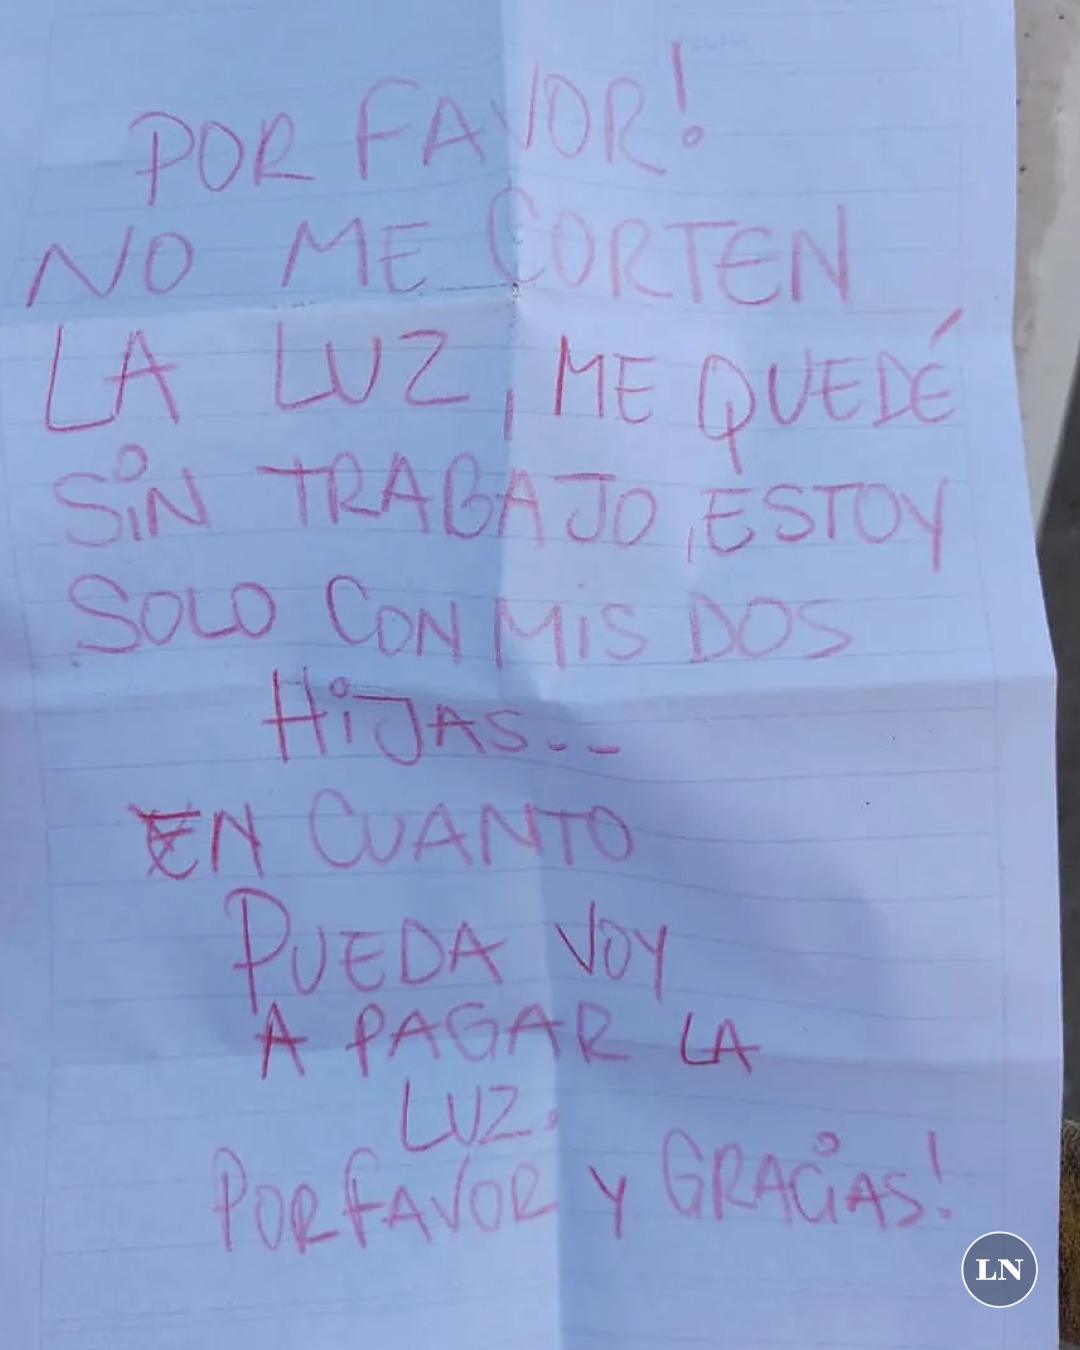 POR FAVOR!
NO ME CORTEN
LA LUZ, ME QUEDÉ
SiN TRABAJO, ESTOY
SOLO CON MiS DOS
HiJAS...
EN CUANTO
PUEDA VOY
A PAGAR LA
LUZ.
POR FAVOR Y GRACiAS!
LN